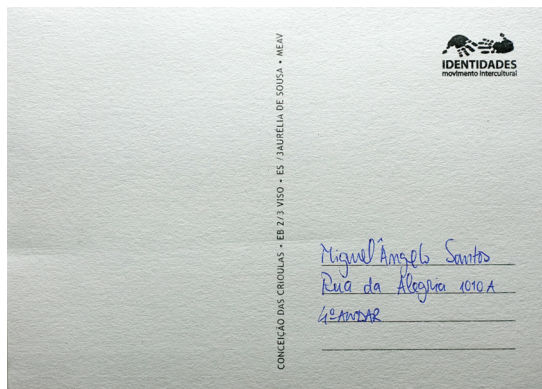 IDENTIDADES
movimento intercultural
CONCEIÇÃO DAS CRIOULAS • EB 2/3 VISO • ES /3AURÉLIA DE SOUSA • MEAV
Miguel Ângelo Santos
Rua da Alegria 1010 A
4º ANDAR